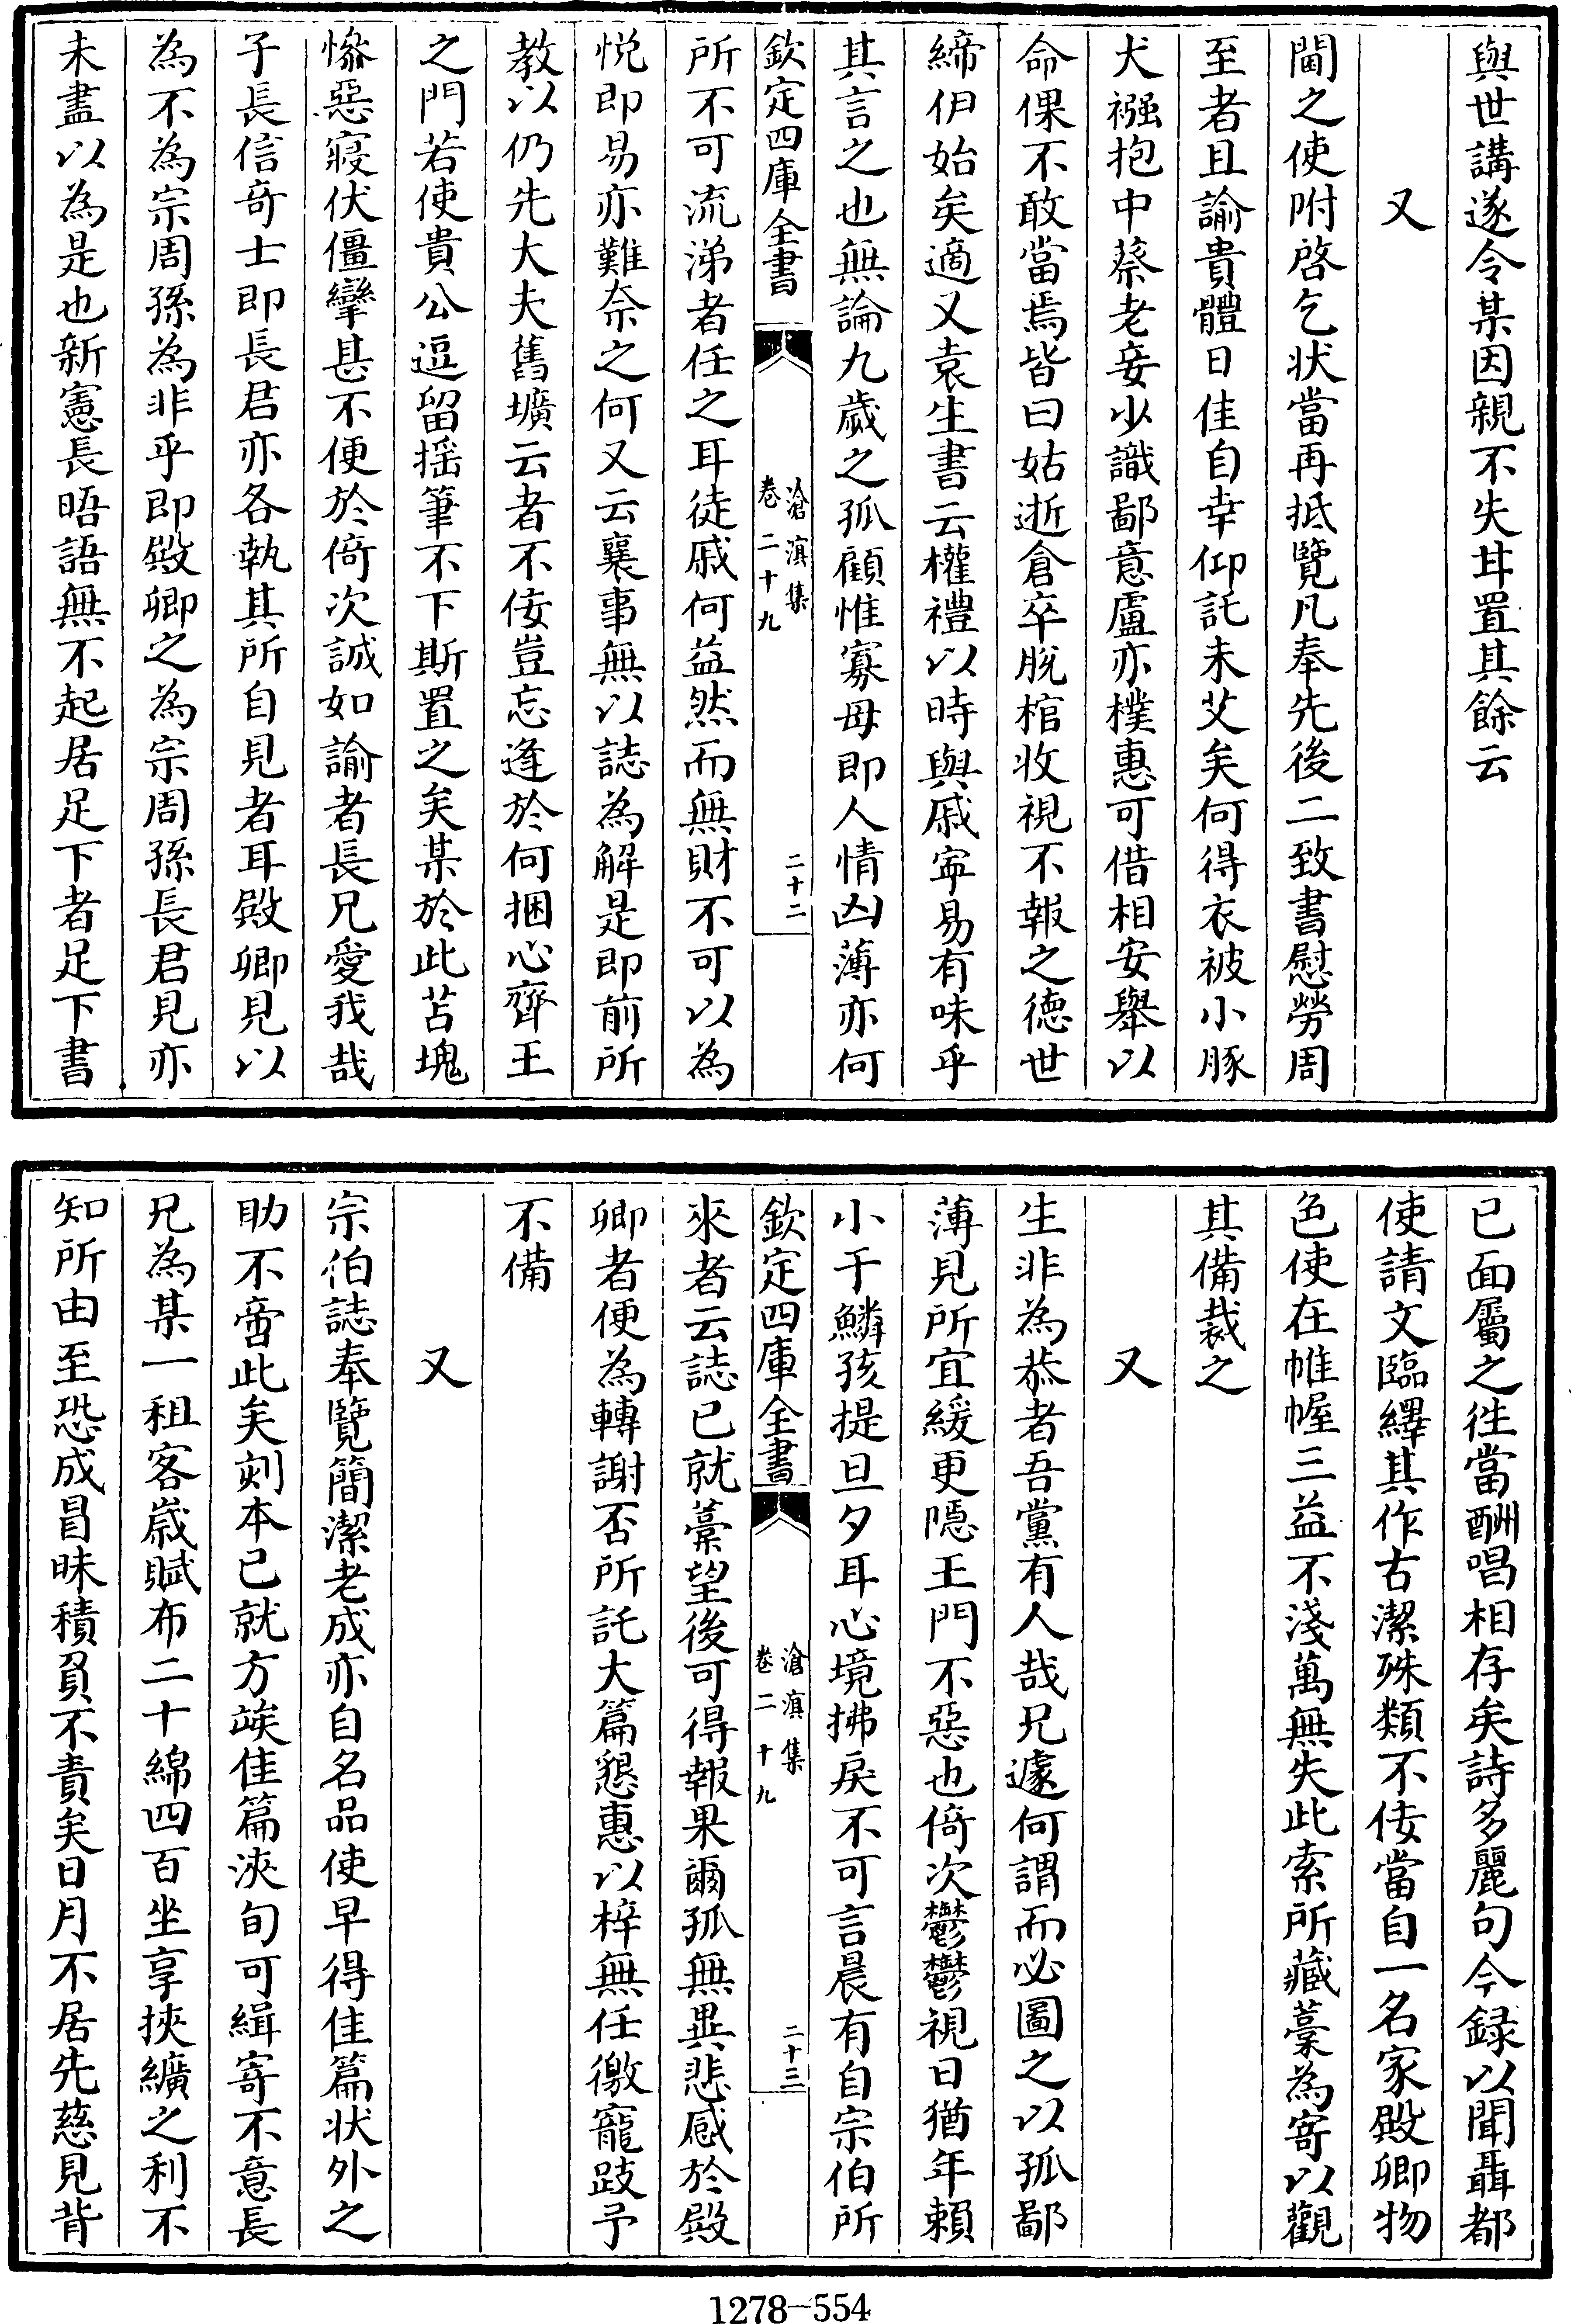 與世講遂令某因親不失耳置其餘云
又
閫之使附啓乞状當再抵覽凡奉先後二致書慰勞周
至者且諭貴體日佳自幸仰託未艾矣何得衣被小豚
犬襁抱中蔡老妾少識鄙意盧亦樸惠可借相安舉以
命倮不敢當焉皆曰姑逝倉卒脫棺收視不報之德世
締伊始矣適又袁生書云權禮以時與戚寧易有味乎
其言之也無論九歲之孤顧惟寡母即人情凶薄亦何
欽定四庫全書
滄溟集
卷二十九
二十二
所不可流涕者任之耳徒戚何益然而無財不可以為
悅即易亦難奈之何又云襄事無以誌為解是即前所
教以仍先大夫舊壙云者不侫豈忘逢於何捆心齊王
之門若使貴公逗留揺筆不下斯置之矣某於此苫塊
慘惡寢伏僵攣甚不便於倚次誠如諭者長兄愛我哉
子長信奇士即長君亦各執其所自見者耳殿卿見以
為不為宗周孫為非乎即殿卿之為宗周孫長君見亦
未盡以為是也新憲長晤語無不起居足下者足下書
已面屬之徃當酬唱相存矣詩多麗句今録以聞聶都
使請文臨繹其作古潔殊類不侫當自一名家殿卿物
色使在帷幄三益不淺萬無失此索所藏藁為寄以觀
其備裁之
又
生非為恭者吾黨有人哉兄遽何謂而必圖之以孤鄙
薄見所宜緩更隠王門不惡也倚次鬱鬱視日猶年賴
小于鱗孩提旦夕耳心境拂戾不可言晨有自宗伯所
欽定四庫全書
滄溟集
卷二十九
二十三
來者云誌已就藁望後可得報果爾孤無異悲感於殿
卿者便為轉謝否所託大篇懇惠以梓無任徼寵跂予
不備
又
宗伯誌奉覽簡潔老成亦自名品使早得佳篇状外之
助不啻此矣刻本已就方竢佳篇浹旬可緝寄不意長
兄為某一租客嵗賦布二十綿四百坐享挾纊之利不
知所由至恐成冒昧積負不責矣日月不居先慈見背
1278-554